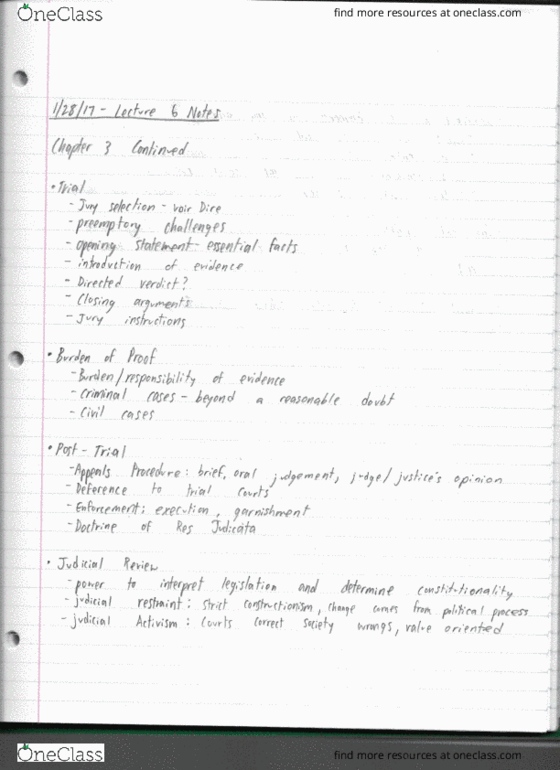 OneClass
find more resources at oneclass.com
1/28/17 - Lecture 6 Notes
Chapter 3 Continued
• Trial
- Jury selection - voir Dire
- preemptory challenges
- opening statement - essential facts
- introduction of evidence
- Directed verdict?
- Closing arguments
- Jury instructions
• Burden of Proof
- Burden/responsibility of evidence
- criminal cases - beyond a reasonable doubt
- Civil cases
• Post - Trial
- Appeals Procedure: brief, oral judgement, judge/justice's opinion
- Deference to trial courts
- Enforcement: execution, garnishment
- Doctrine of Res Judicata
• Judicial Review
- power to interpret legislation and determine constitutionality
- judicial restraint: strict constructionism, change comes from political process
- judicial Activism: Courts correct society wrongs, value oriented
OneClass
find more resources at oneclass.com